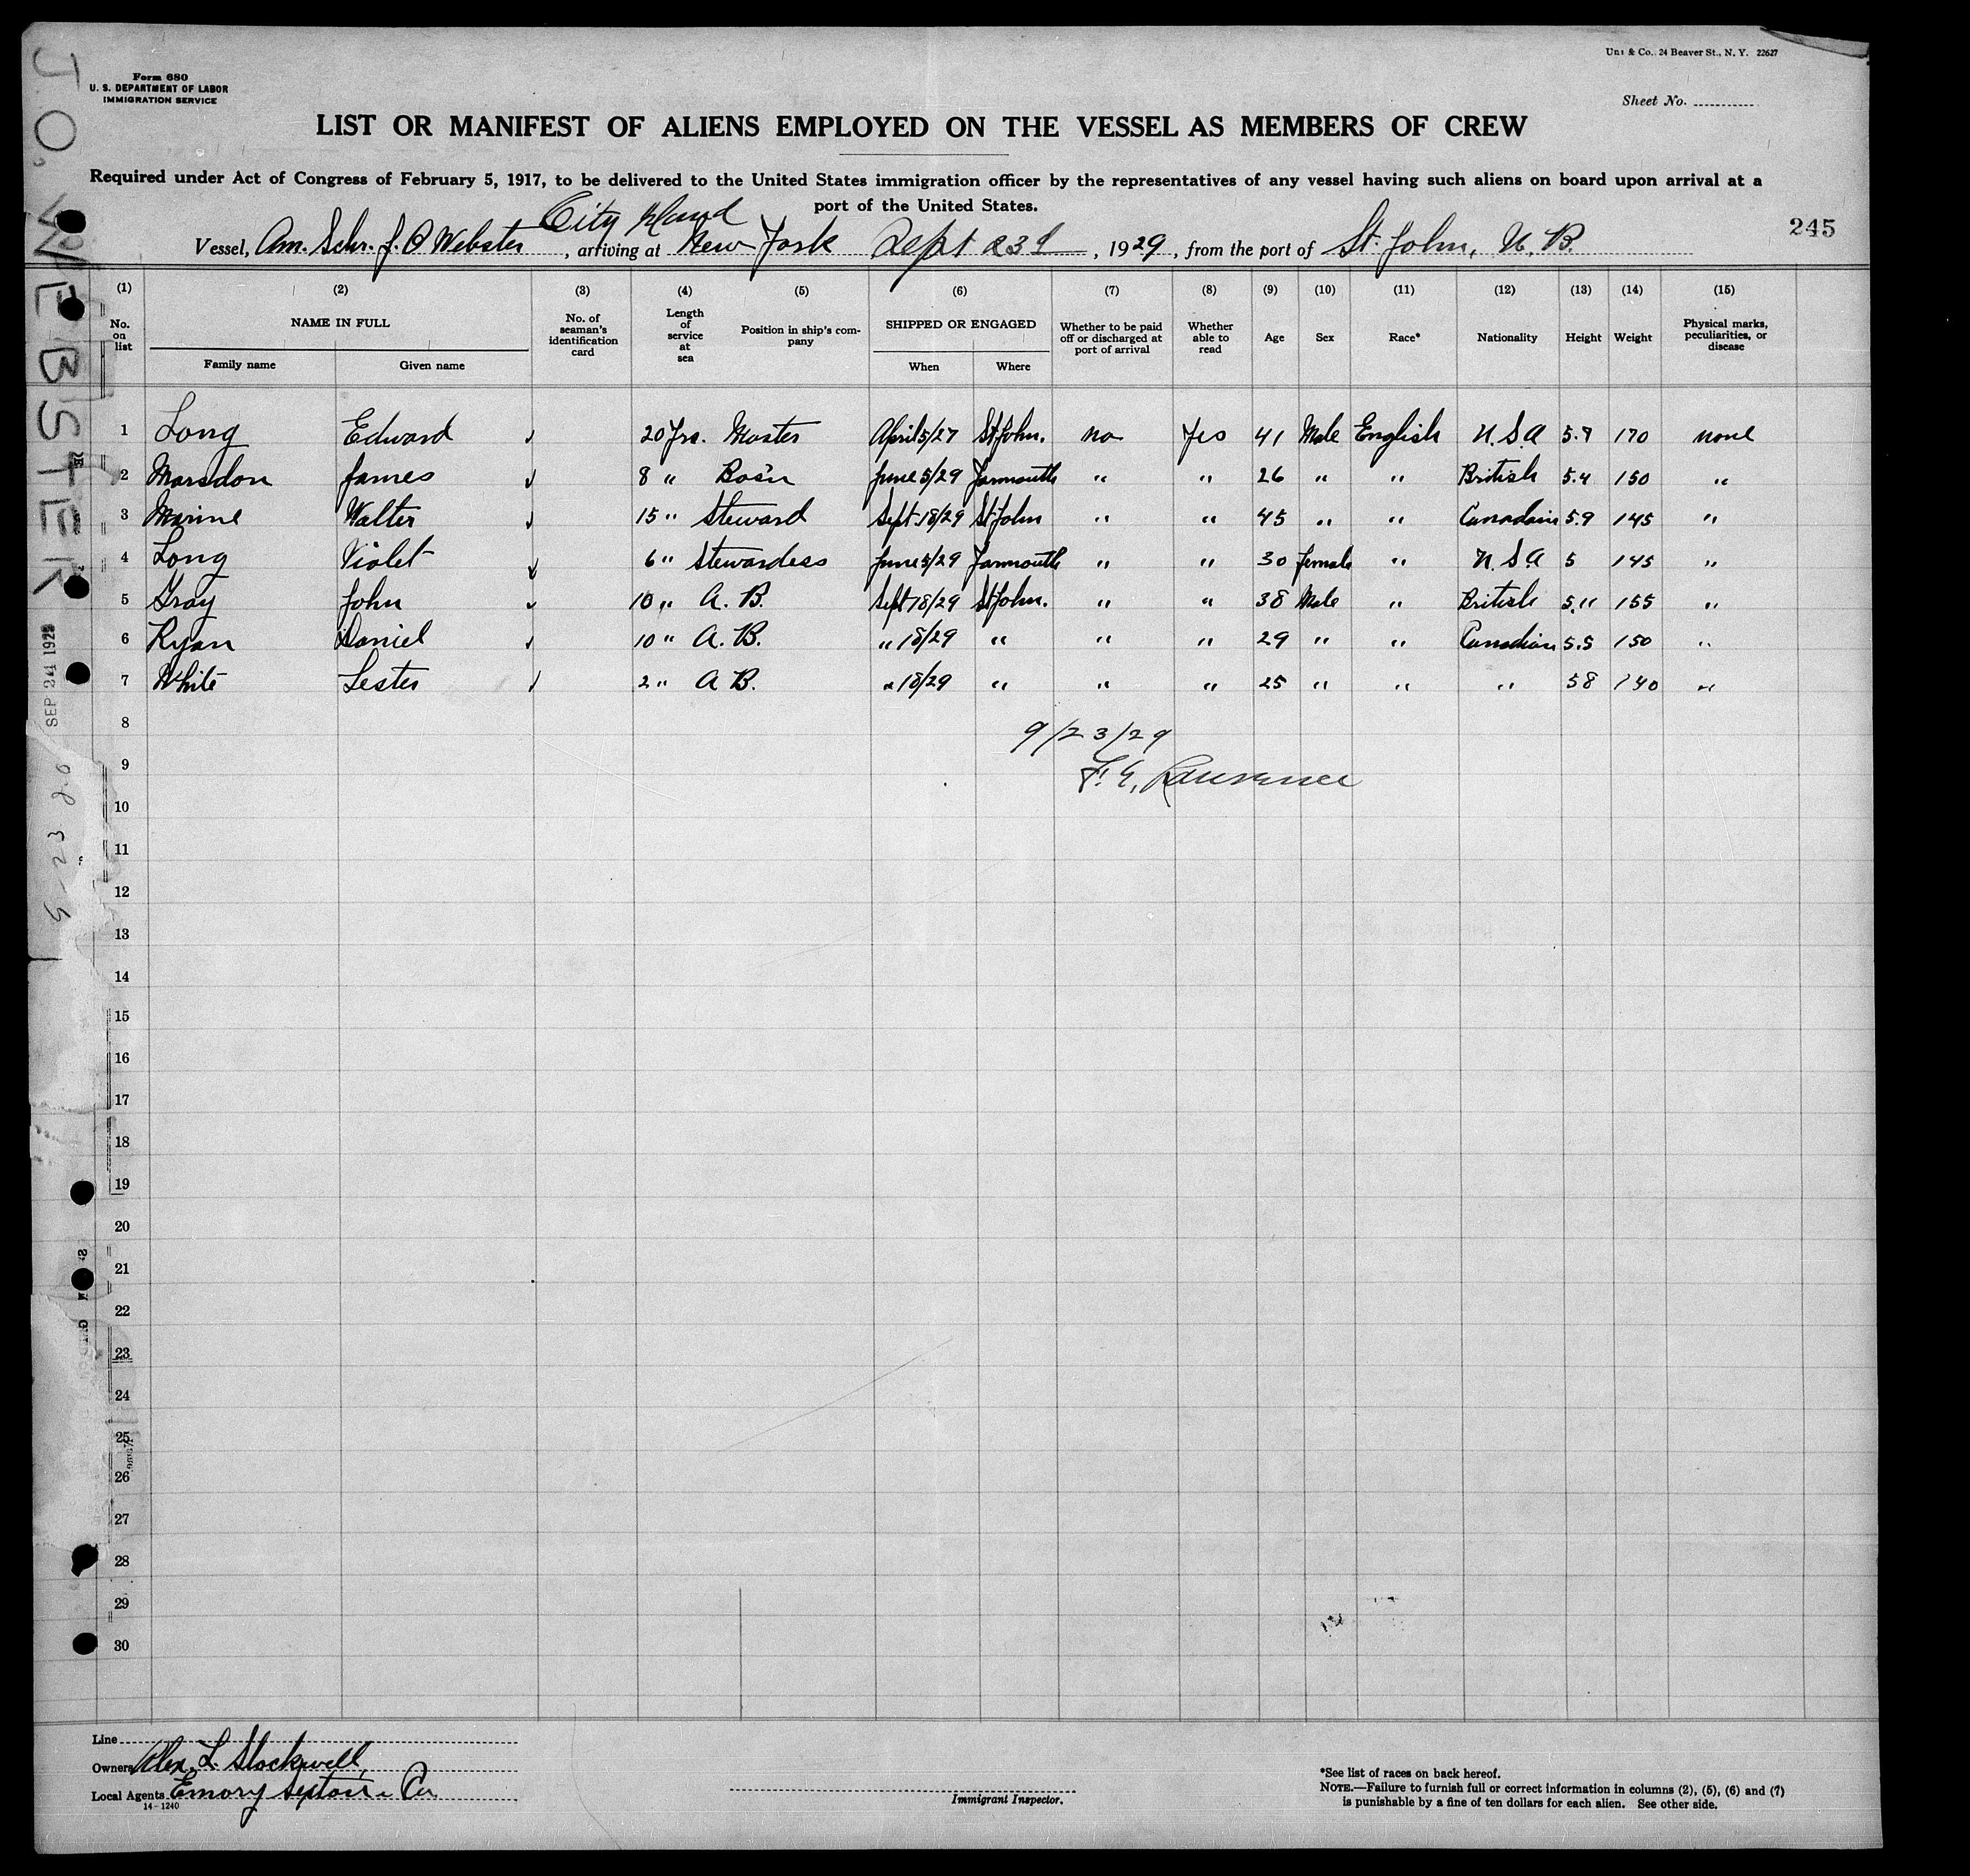 Form 680
U. S. DEPARTMENT OF LABOR
IMMIGRATION SERVICE
& Co., 24 Beaver St., N. Y. 22627
Sheet No.
LIST OR MANIFEST OF ALIENS EMPLOYED ON THE VESSEL AS MEMBERS OF CREW
Required under Act of Congress of February 5, 1917, to be delivered to the United States immigration officer by the representatives of any vessel having such aliens on board upon arrival at a
port of the United States.
245
City Island
Vessel, Am. Schr. J. O Webster, arriving at New York Sept 23d, 1929, from the port of St. John, N. B.
(1) (2) (3) (4) (5) (6) (7) (8) (9) (10) (11) (12) (13) (14) (15)
No. on list NAME IN FULL No. of seaman's identification card Length of service at sea Position in ship's company SHIPPED OR ENGAGED Whether to be paid off or discharged at port of arrival Whether able to read Age Sex Race* Nationality Height Weight Physical marks, peculiarities, or disease
Family name Given name When Where
1 Long Edward ✓ 20 Yrs. Master April 5/27 St John. no Yes 41 Male English U.S.A 5.7 170 none
2 Marsdon James ✓ 8 " Bos'n June 5/29 Yarmouth " " 26 " " British 5.4 150 "
3 Marine Walter ✓ 15 " Steward Sept 18/29 St John " " 45 " " Canadain 5.9 145 "
4 Long Violet ✓ 6 " Stewardess June 5/29 Yarmouth " " 30 female " U.S.A 5 145 "
5 Gray John ✓ 10 " A. B. Sept 18/29 St John. " " 38 Male " British 5.11 155 "
6 Ryan Daniel ✓ 10 " A. B. " 18/29 " " " 29 " " Canadian 5.5 150 "
7 White Lester ✓ 2 " A B. " 18/29 " " " 25 " " " 58 140 "
8
9/23/29
9
F. E. Lawrence
10
11
12
13
14
15
16
17
18
19
20
21
22
23
24
25
26
27
28
29
30
Line
Owners Alex. L. Stockwell,
Local Agents Emory Co
14-1240
Immigrant Inspector.
*See list of races on back hereof.
NOTE.—Failure to furnish full or correct information in columns (2), (5), (6) and (7)
is punishable by a fine of ten dollars for each alien. See other side.
J. O. WEBSTER
SEP 24 1929